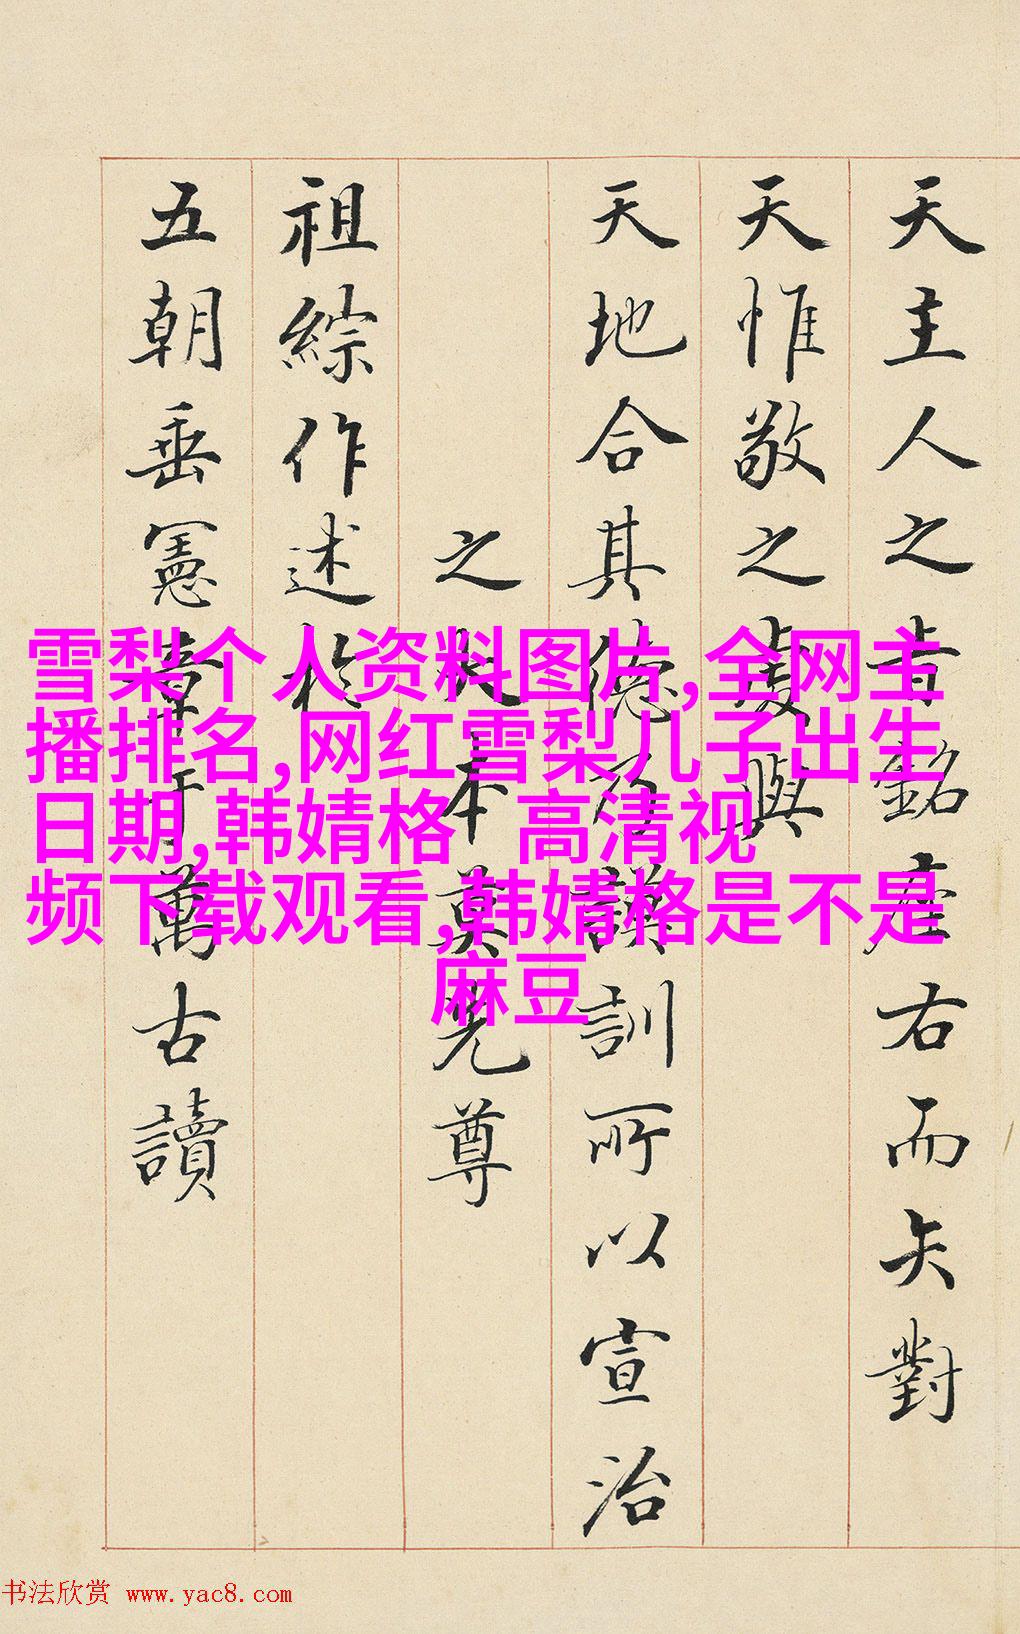 天主人之銘座右而矢對
天惟敬之虔與
天地合其德乃謨訓所以宣治
之本莫先尊
祖綜作述於
五朝垂憲章于萬古讀
雪梨个人资料图片,全网主
播排名,网红雪梨儿子出生
日期,韩婧格 高清视
频下载观看,韩婧格是不是
麻豆
书法欣赏 www.yac8.com